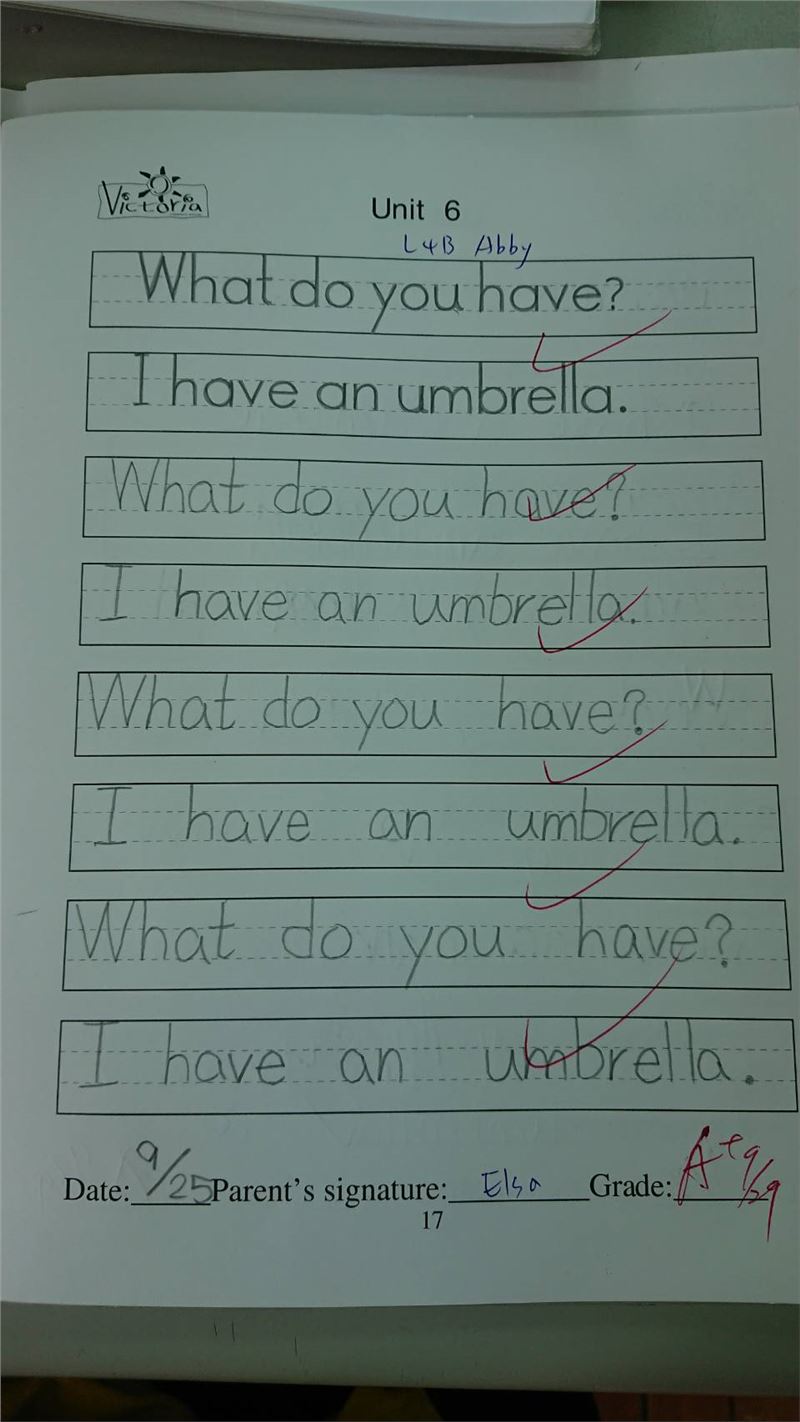 Victoria
Unit 6
L4B Abby
What do you have?
I have an umbrella.
What do you have?
I have an umbrella.
What do you have?
I have an umbrella.
What do you have?
I have an umbrella.
Date: 9/25 Parent's signature: Elsa Grade: A+ 9/29
17